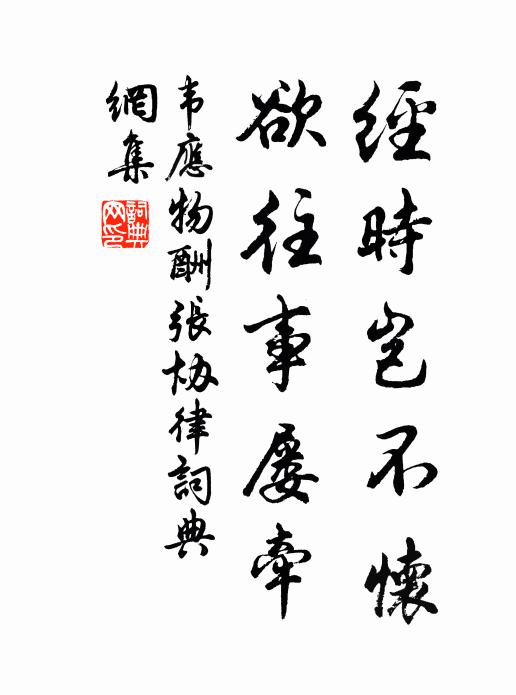 經時豈不懷
欲往事屢牽
韦應物酬張协律詞典
網集
詞典
网印